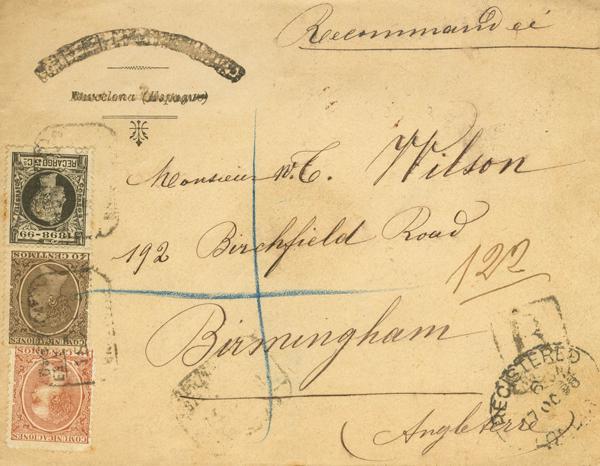 Recommandée
Barcelona (Espagne)
Monsieur W. T. Wilson
192 Birchfield Road
122
Birmingham
(Angleterre)
R
REGISTERED
7 OC 98
RECARGO 5 Cs
1898-99
40 CENTIMOS
COMUNICACIONES
COMUNICACIONES